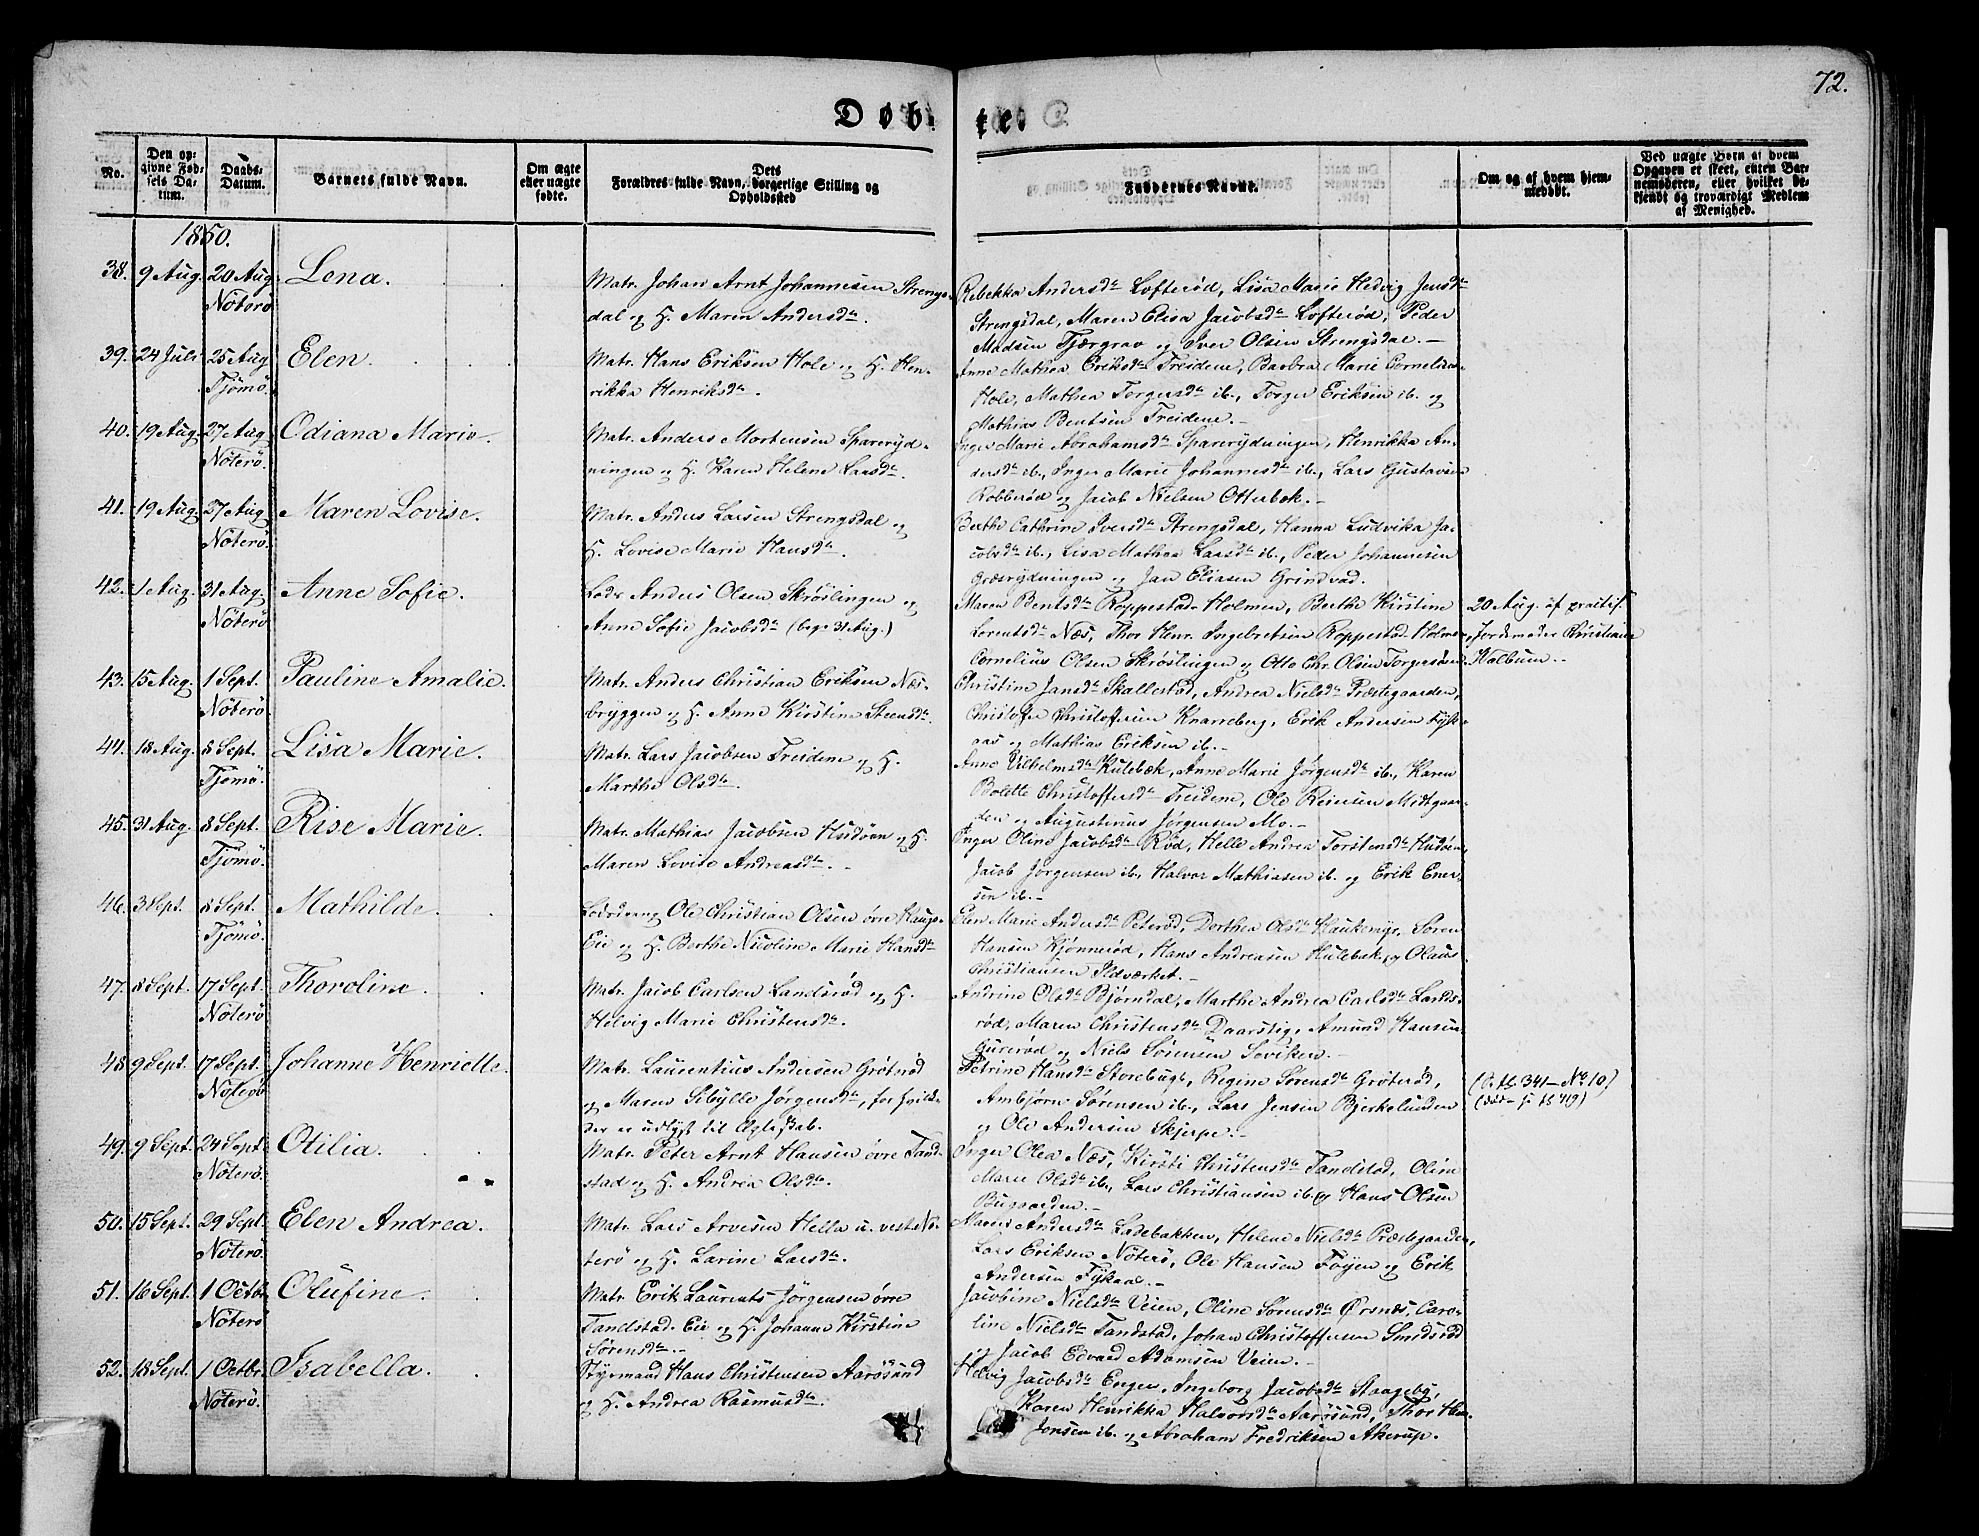 72.
Døbte.
No.
Den opgivne Fødsels Datum.
Daabs-Datum.
Barnets fulde Navn.
Om ægte eller uægte fødte.
Dets Forældres fulde Navn, borgerlige Stilling og Opholdssted
Faddernes Navne.
Om og af hvem hjemmedøbt.
Ved uægte Børn af hvem Opgaven er skeet, enten Barnemoderen, eller hvilket bekjendt og troværdigt Medlem af Menighed.
1850.
38. 9 Aug. 20 Aug Nöterö Lena.
Matr. Johan Arnt Johannesen Strengs-
dal og H. Maren Andersdtr.
Rebekka Andersdtr Lofterød, Lisa Marie Hedvig Jensdtr
Strengsdal, Maren Elisa Jacobsdtr Lofterød, Peder
Madsen Tjærgrav og Iver Olsen Strengsdal.-
39. 24 Juli 25 Aug Tjömö. Elen.
Matr. Hans Eriksen Hole og H. Hen-
rikka Henriksdtr.
Anne Mathea Eriksdtr Treidene, Barbra Marie Cornelius-
Hole, Mathea Torgersdtr ib., Torger Eriksen ib. og
Mathias Bentsen Treidene.-
40. 19 Aug. 27 Aug Nöterö. Odiana Marie.
Matr. Anders Mortensen Sparerÿd-
ningen og H. Karen Helene Larsdtr.
Inger Marie Abrahamsdtr Sparerÿdningen, Henrikka An-
dersdtr ib., Inger Marie Johannesdtr ib., Lars Gustavsen
Robberød og Jacob Nielsen Otterbek.-
41. 19 Aug. 27 Aug Nöterö. Maren Lovise.
Matr. Anders Larsen Strengsdal og
H. Lovise Marie Hansdtr.
Berthe Cathrine Iversdtr Strengsdal, Hanna Ludvika Ja-
cobsdtr ib., Lisa Mathea Larsdtr ib., Peder Johannesen
Græsrÿdningen og Jan Eliasen Grindvad.
42. 1 Aug. 31 Aug. Nöterö Anne Sofie.
Lods Anders Olsen Skröslingen og
Anne Sofie Jacobsdtr (begr. 31 Aug.)
Maren Bentsdtr Roppestad-Holmen, Berthe Kirstine
Lorentsdtr Næs, Thor Henr. Ingebretsen Roppestad-Holmen,
Cornelius Olsen Skröslingen og Otto Chr. Olsen Torgersøen.
20 Aug. af
Jordemoder Christiane
Kalbum.-
43. 15 Aug. 1 Sept. Nöterö Pauline Amalie.
Matr. Anders Christian Eriksen Næs-
brÿggen og H. Anne Kirstine Steensdtr.
Christine Jansdtr Skallestad, Andrea Nielsdtr Præstegaarden,
Christofer Christoffersen Knarreberg, Erik Andersen
og Mathias Eriksen ib.-
44. 18 Aug. 8 Sept. Tjömö. Lisa Marie.
Matr. Lars Jacobsen Treidene og H.
Marthe Olsdtr.
Anne Vilhelmsdtr Kulebæk, Anne Marie Jørgensdtr ib., Karen
Bolette Christoffersdtr Treidene, Ole Reiersen Midtgaar-
den og Augustinus Jørgensen Mo.-
45. 31 Aug. 8 Sept. Tjömö. Rise Marie.
Matr. Mathias Jacobsen Hudøen og H.
Maren Lovise Andreasdtr.-
Inger Oline Jacobsdtr Röd, Helle Andrea Torstensdtr Hudøen,
Jacob Jørgensen ib., Halvor Mathiasen ib. og Erik Ener-
sen ib.-
46. 3 Sept. 8 Sept. Tjömö. Mathilde.
Lodsdreng Ole Christian Olsen øvre Hauge-
Eie og H. Berthe Nicoline Marie Hansdtr
Elen Marie Andersdtr Peterød, Dorthea Olsdtr Haukemÿr, Søren
Hansen Kjønnerød, Hans Andreasen Hulebak, og Olaus
Christiansen Ildverket.-
47. 8 Sept. 17 Sept. Nöterö Thoroline.
Matr. Jacob Carlsen Landsrød og H.
Helvig Marie Christensdtr.
Andrine Olsdtr Bjørndal, Marthe Andrea Carlsdtr Lands-
rød, Maren Christensdtr Daarstig, Amund Hansen
Gurerød og Niels Sørensen Soviken.-
48. 9 Sept. 17 Sept. Nöterö Johanne Henriette.
Matr. Laurentius Andersen Grötröd
og Maren Sibÿlle Jørgensdtr, for hvilke
der er udlÿst til Ægteskab.
Petrine Hansdtr Storebugt, Regine Sørensdtr Gröteröd,
Ambjørn Sørensen ib., Lars Jensen Bjerkelunden
og Ole Andersen Skjerpe.-
(S. fl. 341 - No 10)
49. 9 Sept. 24 Sept. Nöterö. Otilia.
Matr. Peter Arnt Hansen øvre Tand-
stad og H. Andrea Olsdtr.
Inger Olea Næs, Kirsti Christensdtr Tandstad, Oline
Marie Olsdtr ib., Lars Christiansen ib. og Hans Olsen
Bugaarden.-
50. 15 Sept. 29 Sept. Nöterö. Elen Andrea.
Matr. Lars Arvesen Hella u. vestre Nö-
terö og H. Larine Larsdtr.
Maren Andersdtr Ladebakken, Helene Nielsdtr Præstegaarden,
Lars Eriksen Nöterö, Ole Hansen Föÿen og Erik
Andersen Tÿkaa.-
51. 16 Sept. 1 Octbr Nöterö Olufine.
Matr. Erik Laurents Jørgensen øvre
Tandstad-Eie og H. Johanne Kirstine
Sørensdtr.-
Jacobine Nielsdtr Veien, Oline Sørensdtr Ørsnæs, Caro-
line Nielsdtr Tandstad, Johan Christoffersen Smidsröd
og Jacob Edvard Adamsen Veien.-
52. 18 Sept. 1 Octbr. Nöterö. Isabella.
Stÿrmand Hans Christensen Aarösund
og H. Andrea Rasmusdtr.
Helvig Jacobsdtr Engen, Ingeborg Jacobsdtr Skagebÿ,
Karen Henrikka Halvorsdtr Aarösund, Thor Hen.
Jonsen ib. og Abraham Fredriksen Akerup.